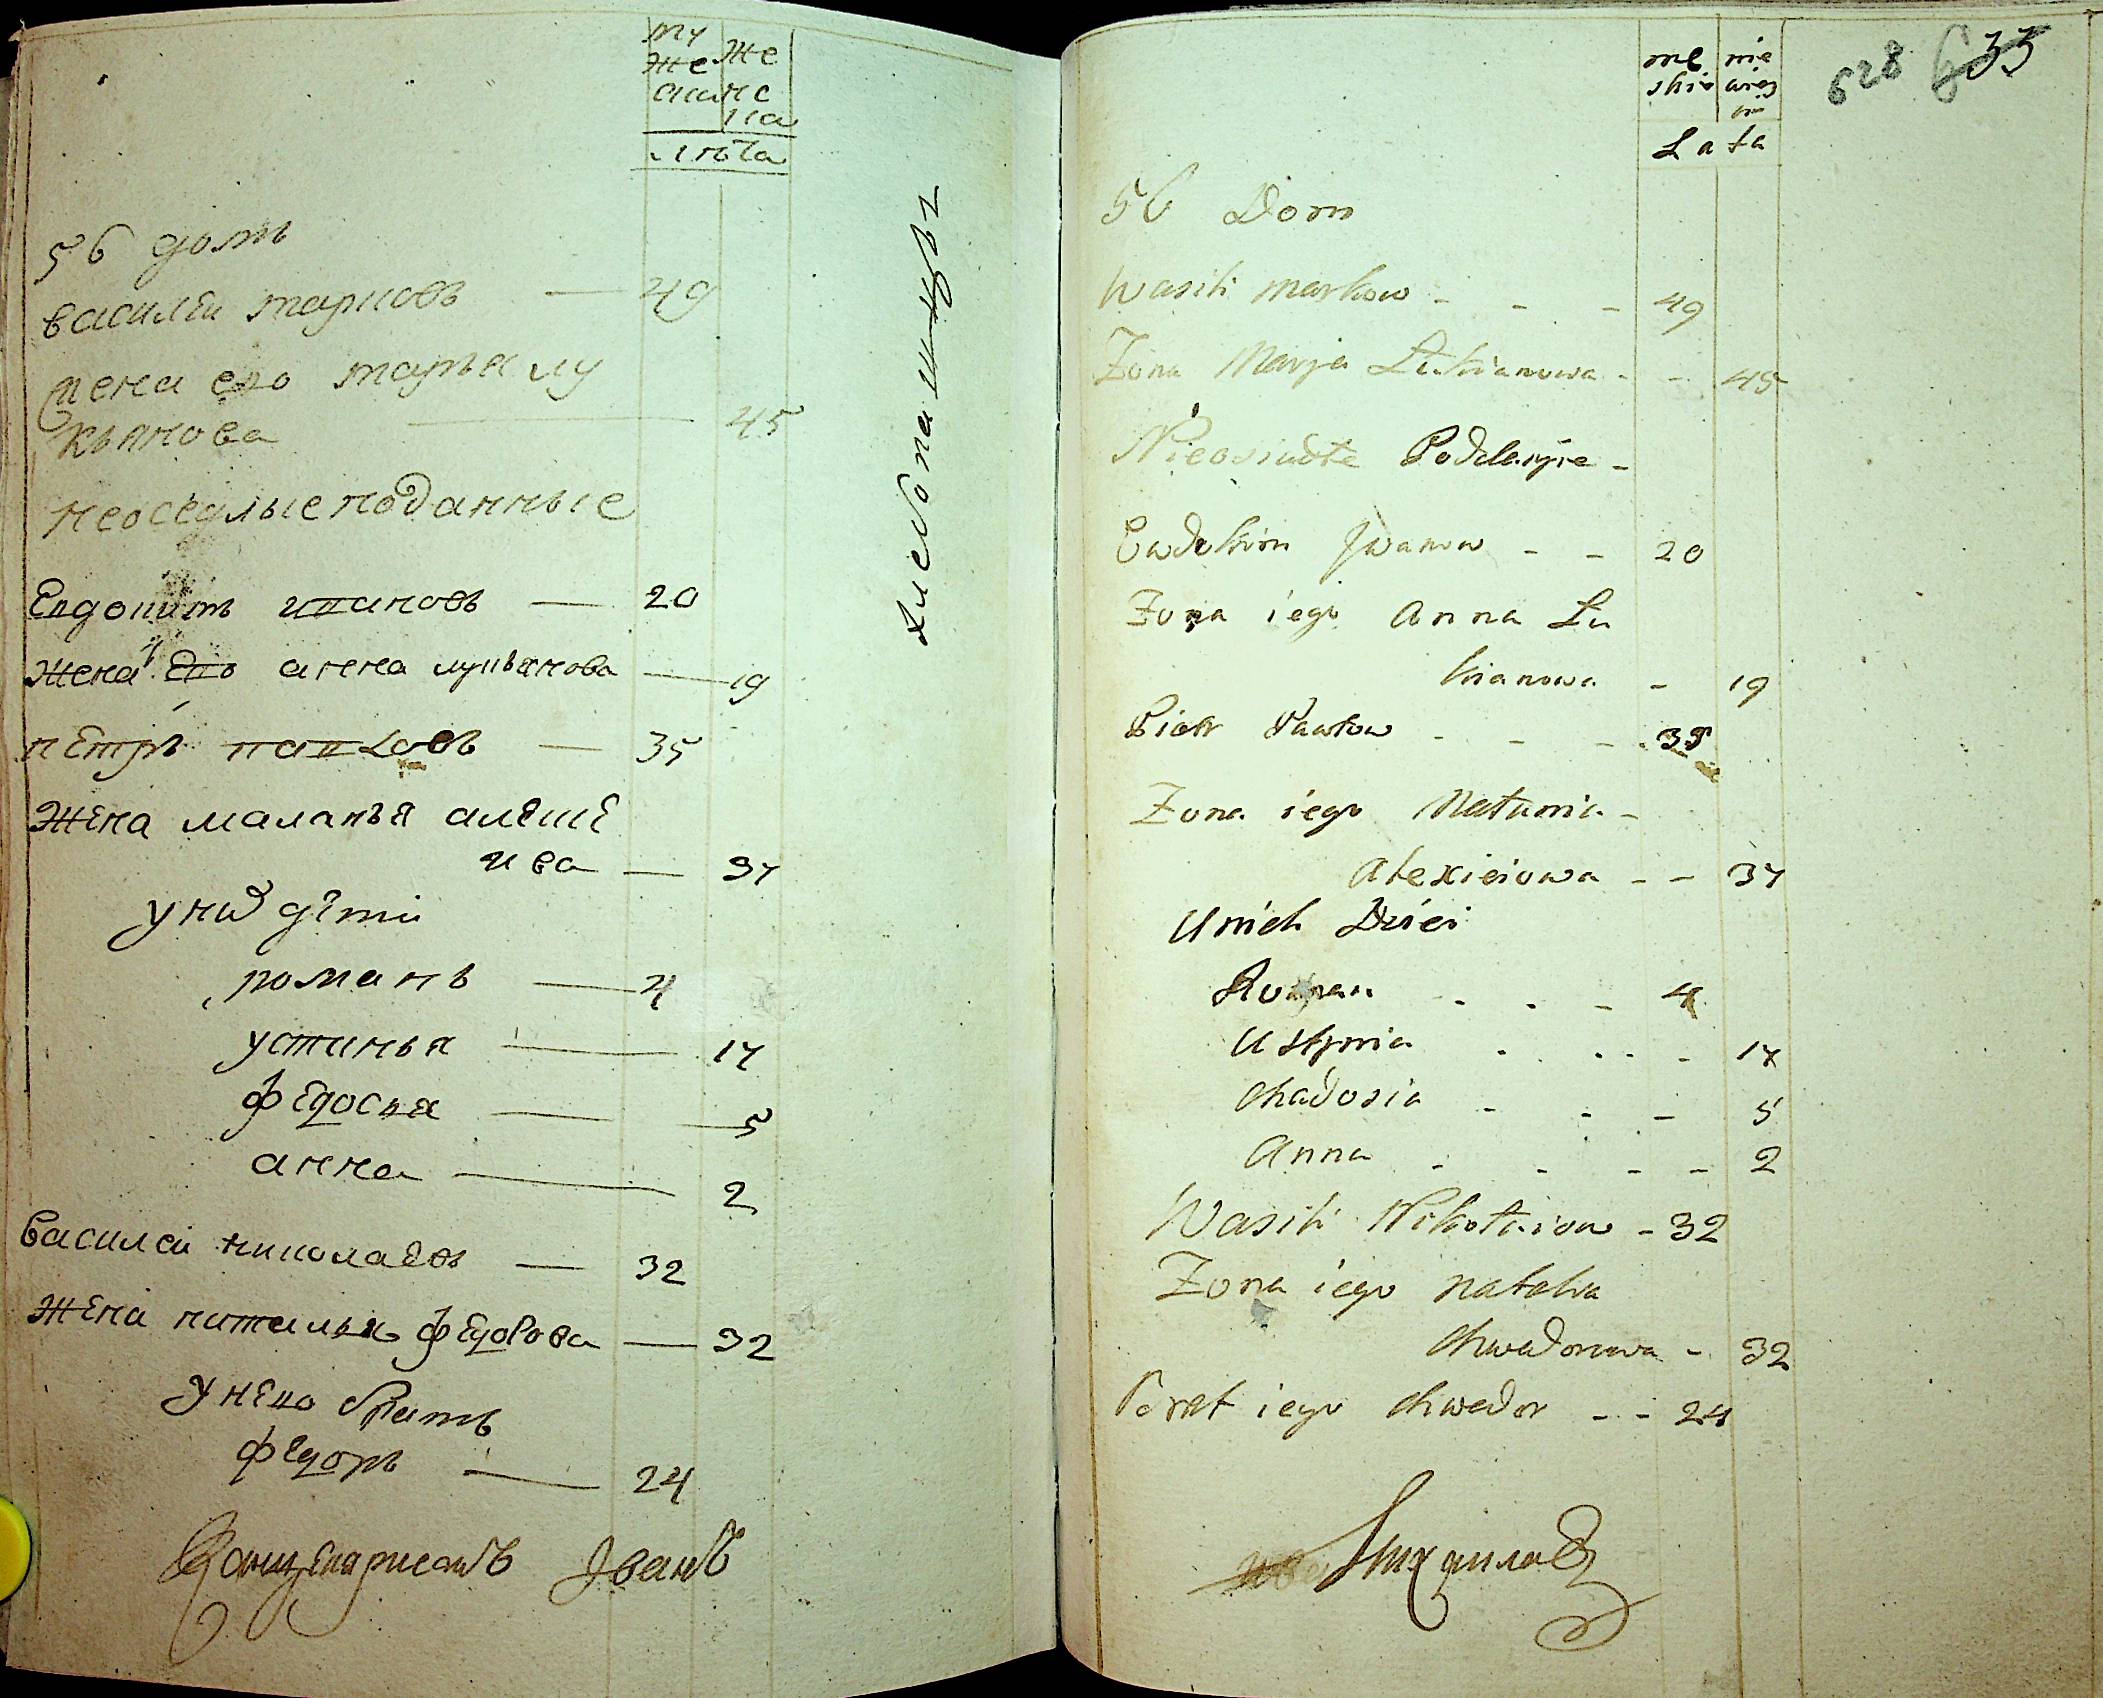 му же
же нс
аинс ка
лѣта
56 домъ
василѣи марковъ — 49
жена его марья лу
кьянова — 45
неоседлые подан­ные
Евдокимъ ивановъ — 20
жена его анна лукьянова — 19
пЕтръ павловъ — 35
жЕна маланья алЕксЕ
ива — 37
у них дѣти
романъ — 4
устинья — 17
фЕдосья — 5
анна — 2
василеи николаевъ — 32
жЕна наталья фЕдорова — 32
у нЕго братъ
фЕдоръ — 24
Иванъ
me nie
skie wies
kie
Lata
628 633
56 Dom
Wasili Markow - - - 49
Zona Marja Lukianowa - - 45
Nieosiadłe Poddanije -
Ewdokim Jwanow - - 20
Zona iego Anna Lu
kianowa - 19
Piotr Pawłow - - - 35
Zona iego Małania -
Alexieiowa - - 37
U nich Dzieci
Roman - - - 4
Ustynia - - - 17
Chadosia - - - 5
Anna - - - - 2
Wasili Nikołaiow - 32
Zona iego Natalia
Chwedorowa - 32
Brat iego Chwedor - - 24
Михаилов